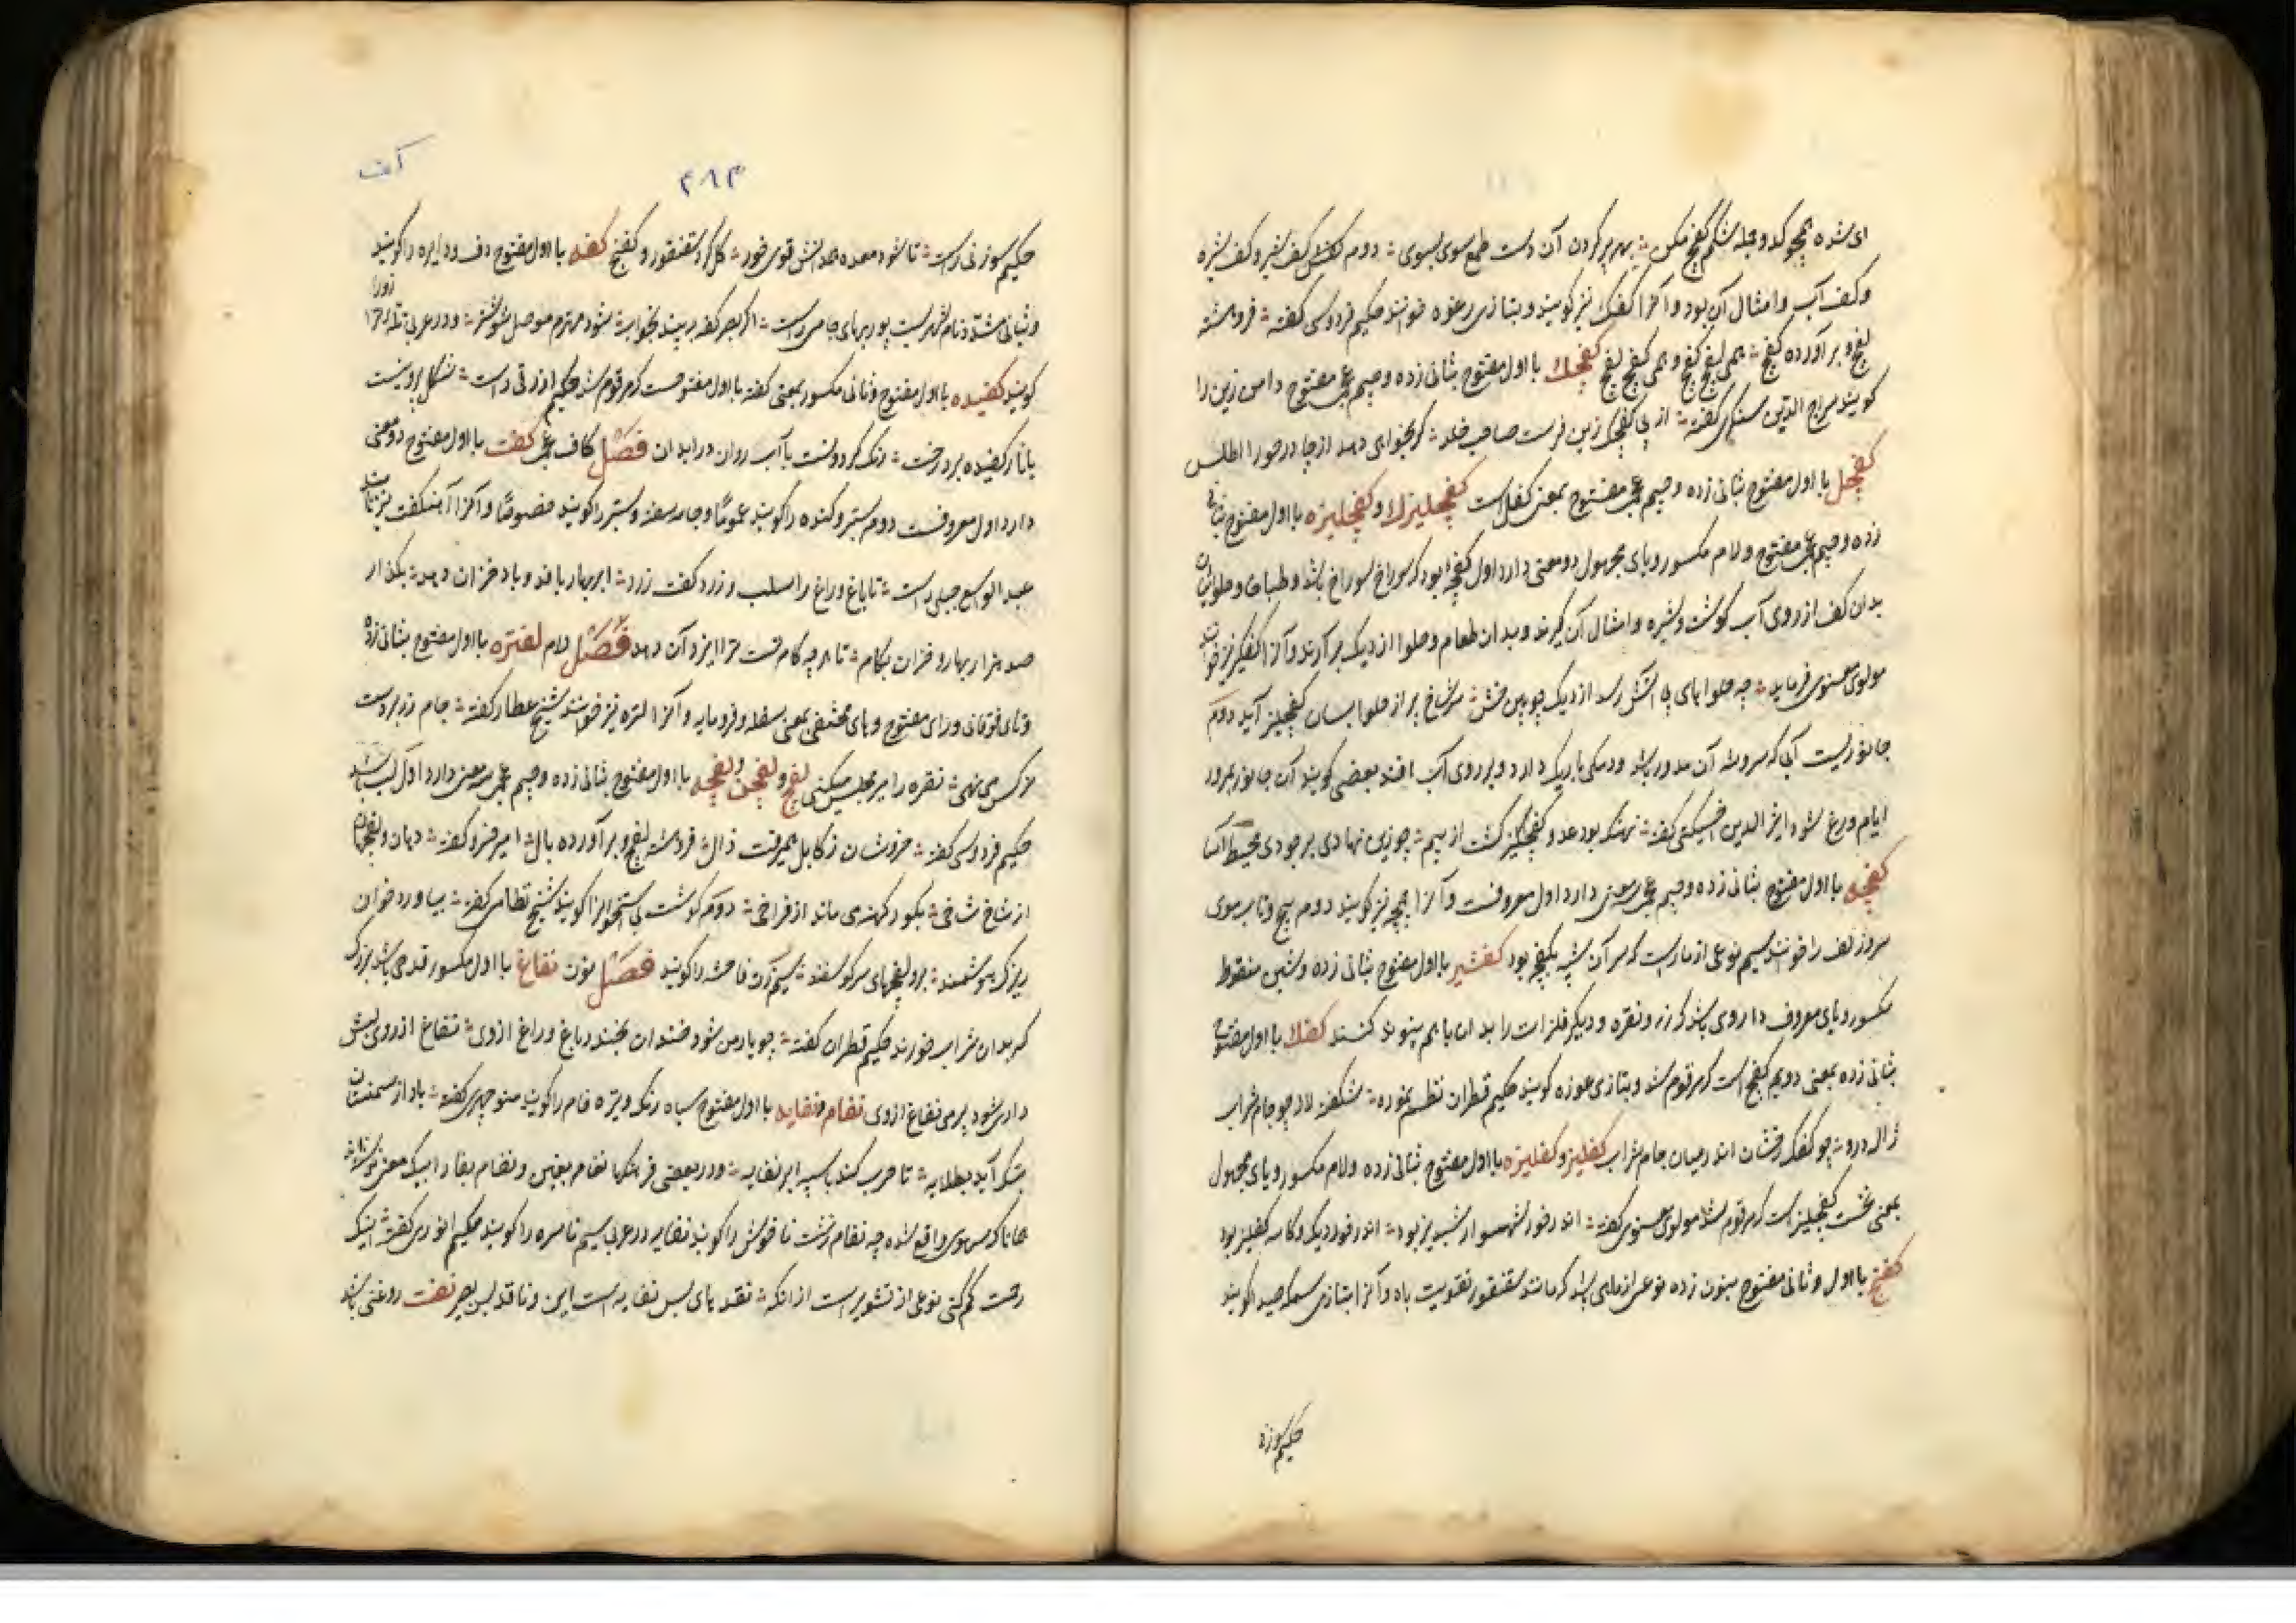 ای شده همچو کدو جمله شکم کفچ مکن بهر پر کردن آن دست طمع سوی بسوی دوم کف شیر و کف شیره
و کف آب و امثال آن بود و آنرا کفک نیز گویند و بتازی رغوه خوانند حکیم فردوسی گفته فروهشته
لفج و برآورده کفج همی لفج کفج و همی کفج لفج کفچک با اول مفتوح بثانی زده و جیم عجمی مفتوح دامن زین را
گویند سراج الدین سگزی گفته از پی کفچک زین فرست صاحب خلد گر بخواهی دهد از چادر حورا اطلس
کفچل با اول مفتوح بثانی زده و جیم عجمی مفتوح بمعنی کفل است کفچلیزک و کفچلیزه با اول مفتوح بثانی
زده و جیم عجمی مفتوح و لام مکسور و یای مجهول دو معنی دارد اول کفچه بود که سوراخ سوراخ باشد و طباخان و حلوائیان
بدان کف از روی آب گوشت و شیره و امثال آن گیرند و بدان طعام و حلوا از دیک بر آرند و آنرا کفگیر نیز خوانند
مولوی معنوی فرماید چه حلواهای بی آتش رسد از دیک چوبین خوش سر شاخ پر از حلوا بسان کفچلیز آید دوم
جانوریست آبی که سر و تنه آن مدور باشد و دمکی باریک دارد و بر روی آب افتد بعضی گویند آن جانور بمرور
ایام وزغ شود اثیر الدین اخسیکتی گفته نهنگ بود عدو کفچلیز گشت از بیم چو زین نهادی بر جودی محیط آسا
کفچه با اول مفتوح بثانی زده و جیم عجمی سه معنی دارد اول معروفست و آنرا چمچه نیز گویند دوم پیچ و تاب موی
سر و زلف را خوانند سیم نوعی از مار است که سر آن شبیه بکفچه بود کفشیر با اول مفتوح بثانی زده و شین منقوط
مکسور و یای معروف داروی باشد که زر و نقره و دیگر فلزات را بدان با هم پیوند کنند کفک با اول مفتوح
بثانی زده بمعنی دویم کفج است که مرقوم شد و بتازی رغوه گویند حکیم قطران نظم نموده شکفته لاله چو جام شراب
ژاله درو چو کفک رخشان اندر میان جام شراب کفلیز و کفلیزه با اول مفتوح بثانی زده و لام مکسور و یای مجهول
بمعنی نخست کفچلیز است که مرقوم شد مولوی معنوی گفته اندر خور شهسوار شبدیز بود اندر خور دیک و کاسه کفلیز بود
کفنج با اول و ثانی مفتوح بنون زده نوعی از ماهی باشد که مانند سقنقور تقویت باه و آنرا بتازی سمکه صیدا گویند
حکیم سوزنی
۲۸۳
کف
حکیم سوزنی راست تا شود معده کفه با اول مفتوح دف و دایره را گویند
و ثانی مشدد نام شهریست و در عربی ترازو را
گویند کفیده با اول مفتوح و ثانی مکسور بمعنی کفته با اول مفتوحست که مرقوم شد حکیم ازرقی راست
یا نار کفیده بر درخت رنگ گردونست یا آب روان در آبدان فصل کاف عجمی گفت با اول مفتوح دو معنی
دارد اول معروفست دوم ستبر و گنده را گویند عموما و جامه سفت و ستبر را گویند خصوصا و آنرا آهنگفت نیز نامند
عبد الواسع جبلی راست تا باغ و راغ را سلب و زرد گفت زرد ابر بهار بافد و باد خزان دهد بگذار
صد هزار بهار و خزان بکام تا هر چه کام تست ترا ایزد آن دهد فصل لام لفتره با اول مفتوح بثانی زده
و تای فوقانی و رای مفتوح و های مختفی بمعنی سفله و فرومایه و آنرا لتره نیز خوانند شیخ عطار گفته جام زر بر دست
نرگس می نهی نقره را بر مجلس میکنی لفج و لفجن و لفجه با اول مفتوح بثانی زده و جیم عجمی سه معنی دارد اول لب باشد
حکیم فردوسی گفته خروشان ز کابل همی رفت زال فروهشته لفج و برآورده یال امیر خسرو گفته دهان و لفجهاشان
از شاخ شاخی بگور کهنه می ماند از فراخی دوم گوشت بی استخوانرا گویند شیخ نظامی گفته بیاورد خوان
زیرک هوشمند برو لفجهای سر گوسفند سیم زن فاحشه را گویند فصل نون نفاغ با اول مکسور قدحی باشد بزرگ
که بدان شراب خورند حکیم قطران گفته چو یار من شود خندان بخندد باغ و راغ از وی نفاغ از روی لبش
دار شود پر می نفاغ از وی نفام و نفایه با اول مفتوح سیاه رنگ و تیره فام را گویند منوچهری گفته باد از سمنستان
بتک آید بطلایه تا حرب کند با سپه ابر نفایه و در بعضی فرهنگها نفام بغین و نفام بقاف را بیک معنی نوشته اند
همانا که سهوی واقع شده چه نفام زشت ناخوش را گویند نفایه در عربی سیم ناسره را گویند حکیم انوری گفته اینک
رحمت گم کنی نوعی از تشویر است از آنکه نقدهای بس نفایه است این و ناقد بس بصیر نفت روغنی باشد